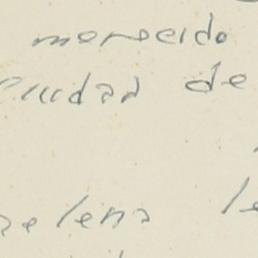 merecido
ciudad de
elena le